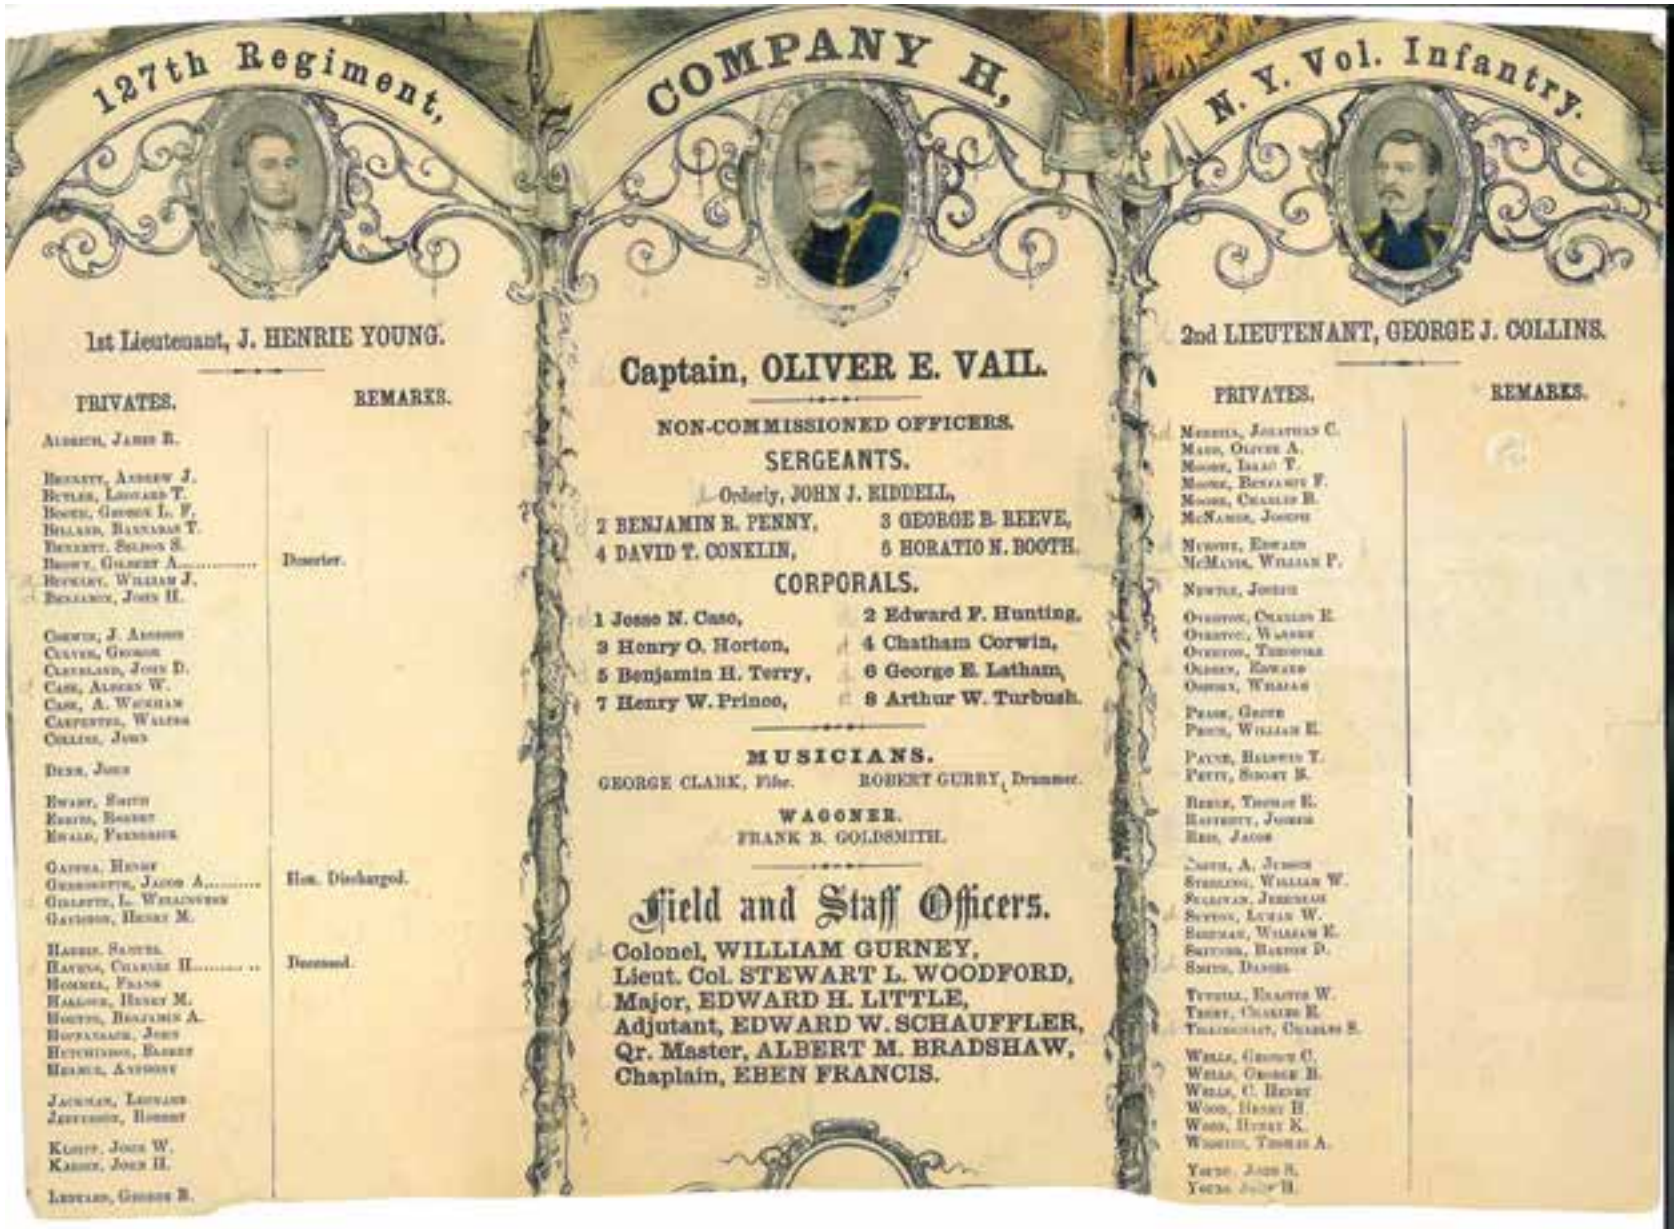 127th Regiment,
COMPANY H,
N. Y. Vol. Infantry.
1st Lieutenant, J. HENRIE YOUNG.
PRIVATES. REMARKS.
ALDRICH, JAMES R.
BENNETT, ANDREW J.
BUTLER, LEONARD T.
BOOTH, GEORGE L. F.
BILLARD, BARNABAS T.
BENNETT, SELDON S.
GILBERT A............... Deserter.
WILLIAM J.
BENJAMIN, JOHN H.
CORWIN, J.
CULVER, GEORGE
CLEVELAND, JOHN D.
CASE, ALBERT W.
CASE, A. WICKHAM
CARPENTER, WALTER
COLLINS, JOHN
JOHN
SMITH
ROBERT
EWALD, FREDERICK
HENRY
JACOB A........... Hon. Discharged.
GILLETTE, L.
HENRY M.
HARRIS, SAMUEL
HAVENS, CHARLES H............ Deceased.
HOMMEL, FRANK
HALLOCK, HENRY M.
HORTON, BENJAMIN A.
JOHN
HUTCHINSON,
ANTHONY
JACKMAN, LEONARD
JEFFERSON, ROBERT
JOHN W.
JOHN H.
GEORGE B.
Captain, OLIVER E. VAIL.
NON-COMMISSIONED OFFICERS.
SERGEANTS.
Orderly, JOHN J. RIDDELL,
2 BENJAMIN R. PENNY, 3 GEORGE B. REEVE,
4 DAVID T. CONKLIN, 5 HORATIO N. BOOTH.
CORPORALS.
1 Jesse N. Case, 2 Edward F. Hunting,
3 Henry O. Horton, 4 Chatham Corwin,
5 Benjamin H. Terry, 6 George E. Latham,
7 Henry W. Prince, 8 Arthur W. Turbush.
MUSICIANS.
GEORGE CLARK, Fifer. ROBERT GURRY, Drummer.
WAGONER.
FRANK B. GOLDSMITH.
Field and Staff Officers.
Colonel, WILLIAM GURNEY,
Lieut. Col. STEWART L. WOODFORD,
Major, EDWARD H. LITTLE,
Adjutant, EDWARD W. SCHAUFFLER,
Qr. Master, ALBERT M. BRADSHAW,
Chaplain, EBEN FRANCIS.
2nd LIEUTENANT, GEORGE J. COLLINS.
PRIVATES. REMARKS.
JONATHAN C.
OLIVER A.
MOORE, ISAAC T.
MOORE, BENJAMIN F.
MOORE, CHARLES B.
JOSEPH
MURPHY, EDWARD
WILLIAM P.
JOSEPH
OVERTON, CHARLES E.
OVERTON, WARREN
OVERTON, THEODORE
EDWARD
OSBORN, WILLIAM
PRICE, WILLIAM E.
PAYNE, BALDWIN T.
PETTY, B.
REEVE, THOMAS E.
RAFFERTY, JOSEPH
REIS, JACOB
SMITH, A. JUDSON
STERLING, WILLIAM W.
SULLIVAN, JEREMIAH
SUTTON, LYMAN W.
WILLIAM E.
BARTON D.
SMITH, DANIEL
TUTHILL, ERASTUS W.
TERRY, CHARLES E.
TILLINGHAST, CHARLES S.
WELLS, GEORGE C.
WELLS, GEORGE B.
WELLS, C. HENRY
WOOD, HENRY H.
WOOD, HENRY K.
WIGGINS, THOMAS A.
YOUNG, JOHN S.
YOUNG, JOHN H.